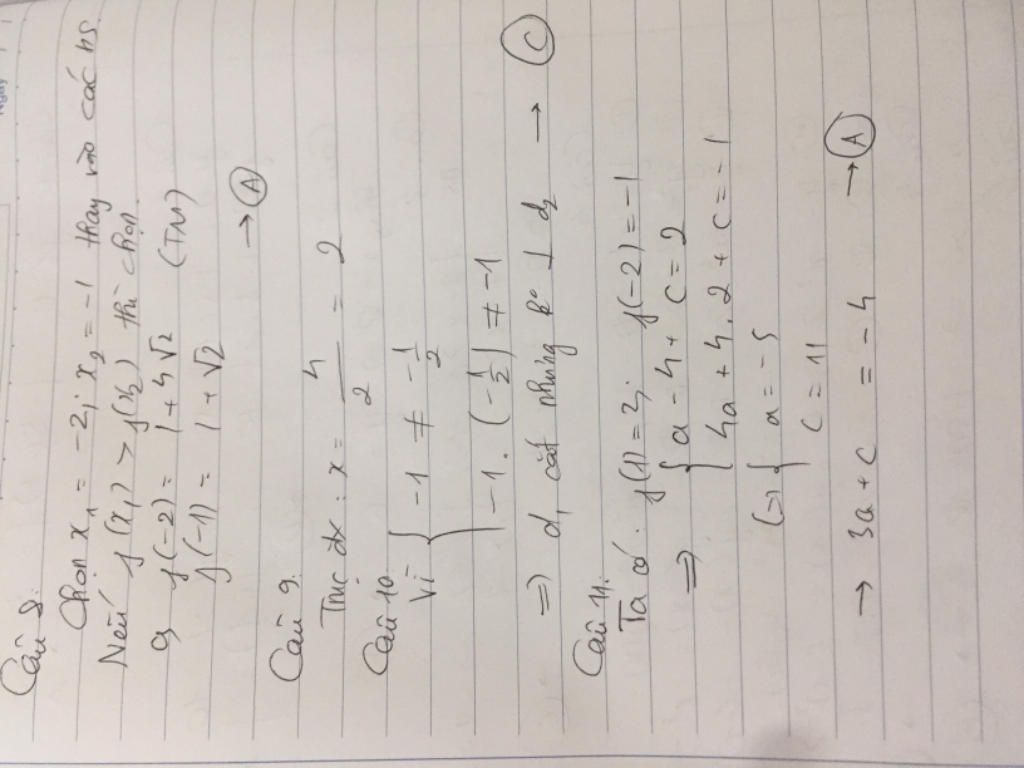 Câu 8:
Chọn x₁ = -2; x₂ = -1 thay vào các hs
Nếu f(x₁) > f(x₂) thì chọn
a, f(-2) = 1 + 4√2 (TM)
f(-1) = 1 + √2
→ Ⓐ
Câu 9.
Trục đx: x = 4/2 = 2
Câu 10
Vì { -1 ≠ -1/2
-1 . (-1/2) ≠ -1
=> d₁ cắt nhưng ko ⊥ d₂ → Ⓒ
Câu 11.
Ta có. f(1) = 2; f(-2) = -1
=> { a - 4 + c = 2
4a + 4.2 + c = -1
(=) { a = -5
c = 11
→ 3a + c = -4 → Ⓐ
Ngày